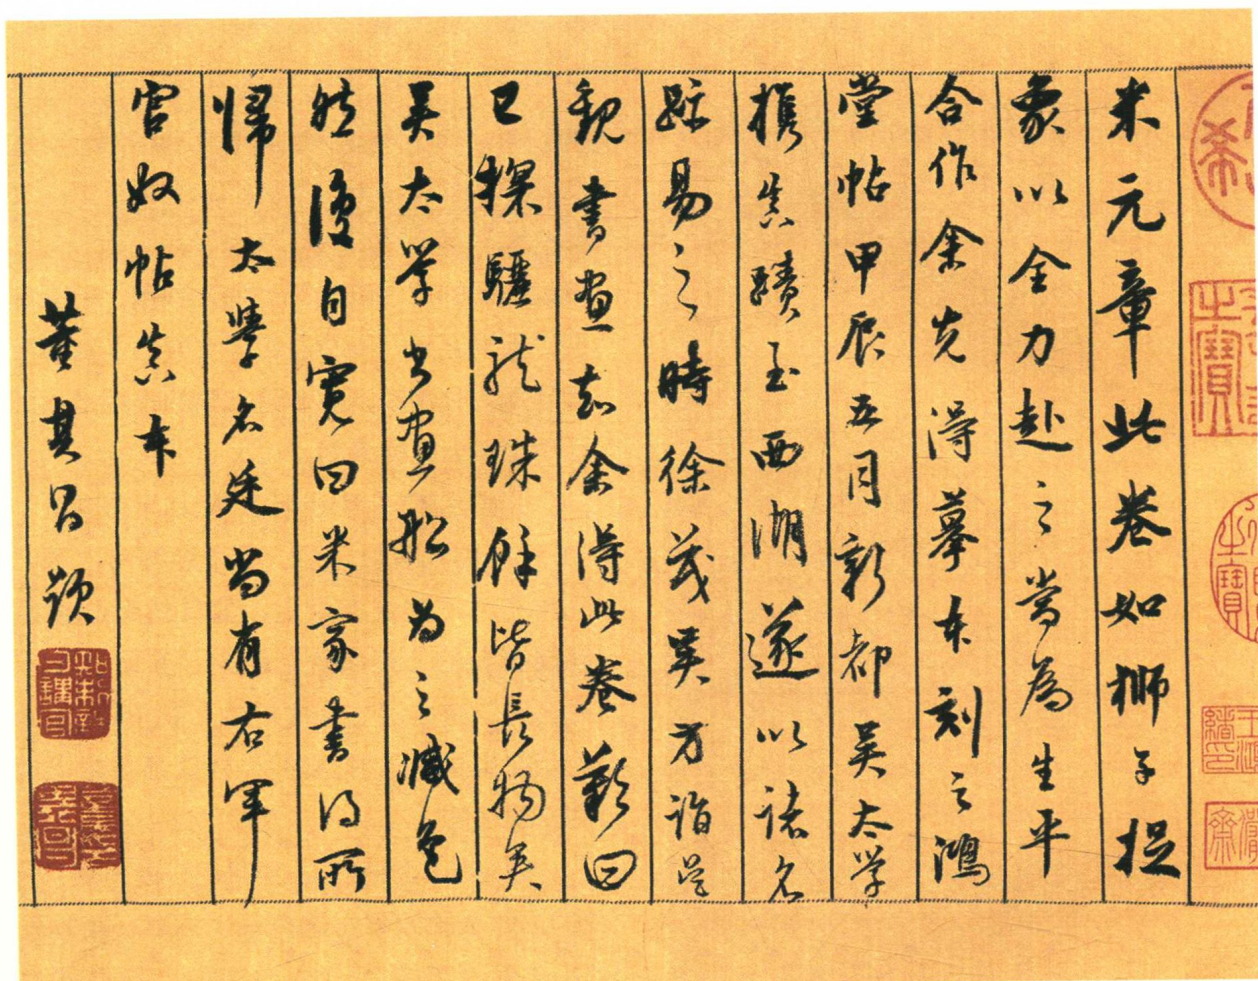 米元章此卷如獅子捉
象以全力赴之當為生平
合作余先得摹本刻之鴻
堂帖甲辰五月新都吳太學
携真蹟至西湖遂以諸名
跡易之時徐茂吳方詣吳
觀書畫知余得此卷歎曰
已探驪龍珠餘皆長物矣
吳太學書畫船為之減色
然後自寬曰米家書得所
歸太學名廷尚有右軍
官奴帖真本
董其昌題
知制誥日講官
董其昌